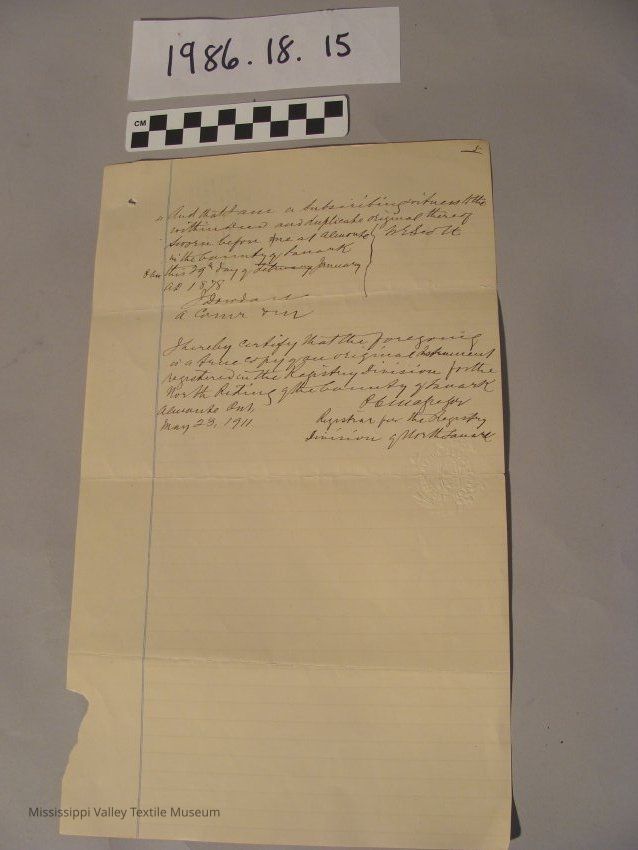 1986.18.15
CM
And that I am a subscribing witness to the
within deed and duplicate original thereof
Sworn before me at Almonte
in the County of Lanark W E Scott
this 29th day of February January
AD 1878
J Dowdall
A Comr
I hereby certify that the foregoing
is a true copy of an original instrument
registered in the Registry Division for the
North Riding of the County of Lanark
Almonte Ont,
May 23, 1911.
Registrar for the Registry
Division of North Lanark
Mississippi Valley Textile Museum